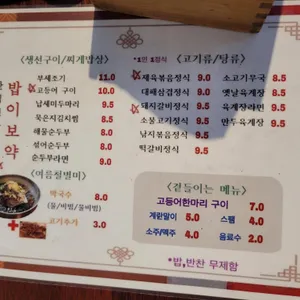 밥이보약
<생선구이/찌게밥상>
부세조기 11.0
고등어 구이 10.0
납세미두마리 9.5
묵은지김치찜 8.5
해물순두부 8.5
섞어순두부 8.5
순두부라면 9.0
<여름철별미>
막국수 8.0
(물/비빔/물비빔)
고기추가 3.0
*1인 1정식
<고기류/탕류>
제육볶음정식 9.5
대패삼겹정식 9.5
돼지갈비정식 9.5
소불고기정식 9.5
낙지볶음정식 9.5
떡갈비정식 9.5
소고기무국 8.5
옛날육개장 8.5
육개장라면 9.0
만두육개장 9.5
<곁들이는 메뉴>
고등어한마리 구이 7.0
계란말이 5.0
스팸 4.0
소주/맥주 4.0
음료수 2.0
*밥,반찬 무제함